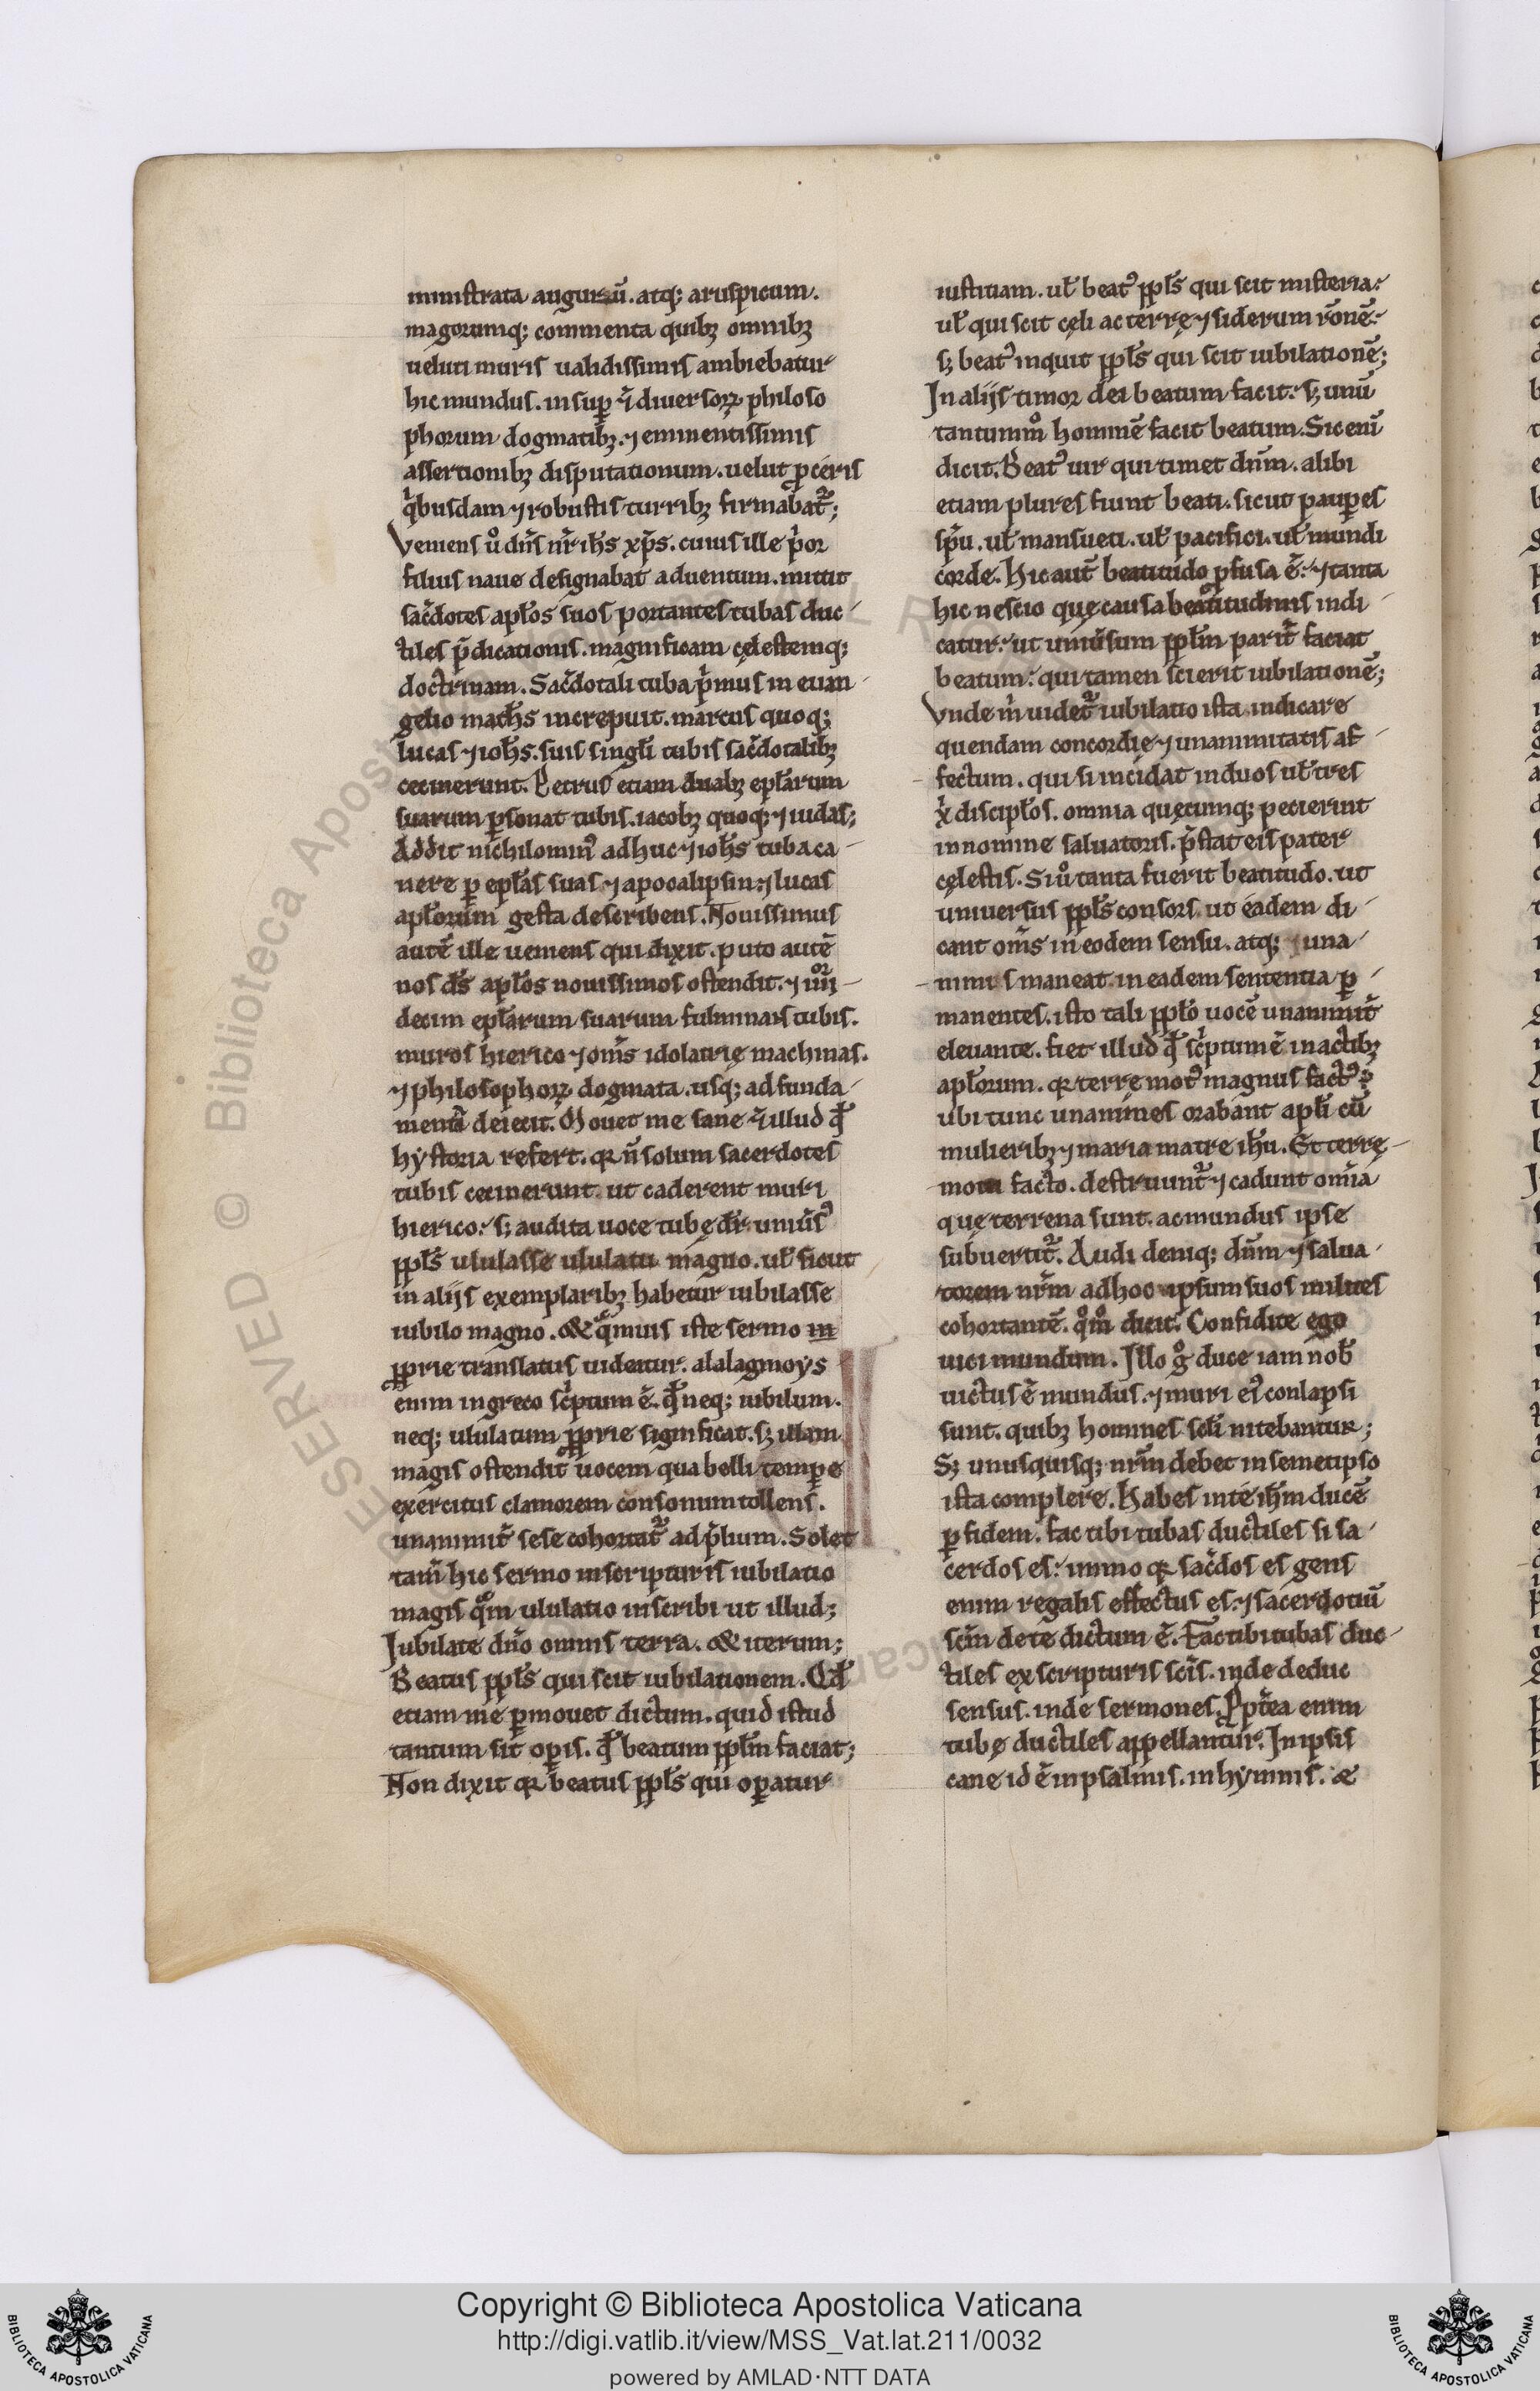 ministrata auguriū. atq; aruspicum.
magorumq; commenta quibꝫ omnibꝫ
ueluti muris ualidissimis ambiebatur
hic mundus. insuꝑ ⁊̄ diuersoꝝ philoso
phorum dogmatibꝫ. ⁊ eminentissimis
assertionibꝫ disputationum. uelut ꝓceris
qͥbusdam ⁊ robustis turribꝫ firmabat᷑;
Veniens ů dn̄s nr̄ ih̄s xp̄s. cuius ille pͥor
filius naue designabat aduentum. mittit
sac̄dotes apl̄os suos portantes tubas duc-
tiles p̄dicationis. magnificam cęlestemq;
doctrinam. Sac̄dotali tuba pͥmus in euan-
gelio math̄s increpuit. marcus quoq;
lucas ⁊ ioh̄s. suis singl̄i tubis sac̄dotalibꝫ
cecinerunt. Petrus etiam duabꝫ epl̄arum
suarum ꝑsonat tubis. iacobꝫ quoq; ⁊ iudas;
Addit nichilomin᷒ adhuc ⁊ ioh̄s tuba ca-
nere ꝑ epl̄as suas ⁊ apocalipsin: ⁊ lucas
apl̄orum gesta describens. Nouissimus
autē ille ueniens qui dixit. puto autē
nos ds̄ apl̄os nouissimos ostendit. ⁊ iiiioꝛ-
decim epl̄arum suarum fulminans tubis.
muros hierico ⁊ om̄s idolatrię machinas.
⁊ philosophoꝝ dogmata. usq; ad funda-
menta deiecit. Mouet me sane ⁊̄ illud qđ
hẏstoria refert. qꝛ n̄ solum sacerdotes
tubis cecinerunt. ut caderent muri
hierico: sꝫ audita uoce tubę dr̄. uniūs᷒
ppl̄s ululasse ululatu magno. ul̄ sicut
in alijs exemplaribꝫ habetur iubilasse
iubilo magno. & qͣmuis iste sermo in
ꝓprie translatus uideatur. alalagmoẏs
enim in greco scͥptum ē. qđ neq; iubilum.
neq; ululatum ꝓprie significat. sꝫ illam
magis ostendit uocem qua belli tempꝑe
exercitus clamorem consonum tollens.
unanimit̄ sese cohortat᷑ ad p̄lium. Solet
tam̄ hic sermo in scripturis iubilatio
magis qͦm ululatio inscribi ut illud;
Iubilate dn̄o omnis terra. & iterum;
Beatus ppl̄s qui scit iubilationem. Qđ
etiam me ꝑmouet dictum. quid istud
tantum sit oꝑis. qđ beatum ppl̄m faciat;
Non dixit qꝛ beatus ppl̄s qui oꝑatur
iustitiam. ul̄ beat᷒ ppl̄s qui scit misteria:
ul̄ qui scit cęli ac terrę ⁊ siderum rōnē:
sꝫ beat᷒ inquit ppl̄s qui scit iubilationē;
In alijs timor dei beatum facit: sꝫ unū
tantummͦ hominē facit beatum. Sic enī
dicit. Beat᷒ uir qui timet dn̄m. alibi
etiam plures fiunt beati. sicut pauꝑes
sp̄u. ul̄ mansueti. ul̄ pacifici. ul̄ mundi
corde. Hic aut̄ beatitudo ꝓfusa ē: ⁊ tanta
hic nescio quę causa beatitudinis indi-
catur: ut uniūsum ppl̄m parit̄ faciat
beatum: qui tamen scierit iubilationē;
Vnde mͥ uidet᷑ iubilatio ista indicare
quendam concordię ⁊ unanimitatis af-
fectum. qui si incidat in duos ul̄ tres
xͥ discipl̄os. omnia quęcumq; pecierint
in nomine saluatoris. p̄stat eis pater
cęlestis. Si ů tanta fuerit beatitudo. ut
uniuersus ppl̄s consors. ut eadem di-
cant om̄s in eodem sensu. atq; una-
nimis maneat. in eadem sententia ꝑ-
manentes. isto tali ppl̄o uocē unanimit̄
eleuante. fiet illud qđ scͥptum ē in actibꝫ
apl̄orum. qꝛ terrę mot᷒ magnus fact᷒ ē
ubi tunc unanimes orabant apl̄i cū
mulieribꝫ ⁊ maria matre ih̄u. Et terrę-
motu facto. destruunt᷑ ⁊ cadunt om̄ia
quę terrena sunt. ac mundus ipse
subuertit᷑. Audi deniq; dn̄m ⁊ salua-
torem nr̄m ad hoc ipsum suos milites
cohortantē. qͦmͦ dicit. Confidite ego
uici mundum. Illo gͦ duce iam nob̄
uictus ē mundus. ⁊ muri ei᷒ conlapsi
sunt. quibꝫ homines scl̄i nitebantur;
Sꝫ unusquisq; nr̄m debet in semetipso
ista complere. Habes in te ih̄m ducē
ꝑ fidem. fac tibi tubas ductiles si sa-
cerdos es: immo qꝛ sac̄dos es gens
enim regalis effectus es. ⁊ sacerdotiū
scm̄ de te dictum ē. Fac tibi tubas duc-
tiles ex scripturis scīs. inde deduc
sensus. inde sermones. Ppt̄ea enim
tubę ductiles appellantur. In ipsis
cane id ē in psalmis. in hẏmnis. &
Copyright © Biblioteca Apostolica Vaticana
http://digi.vatlib.it/view/MSS_Vat.lat.211/0032
powered by AMLAD·NTT DATA
BIBLIOTECA APOSTOLICA VATICANA
BIBLIOTECA APOSTOLICA VATICANA